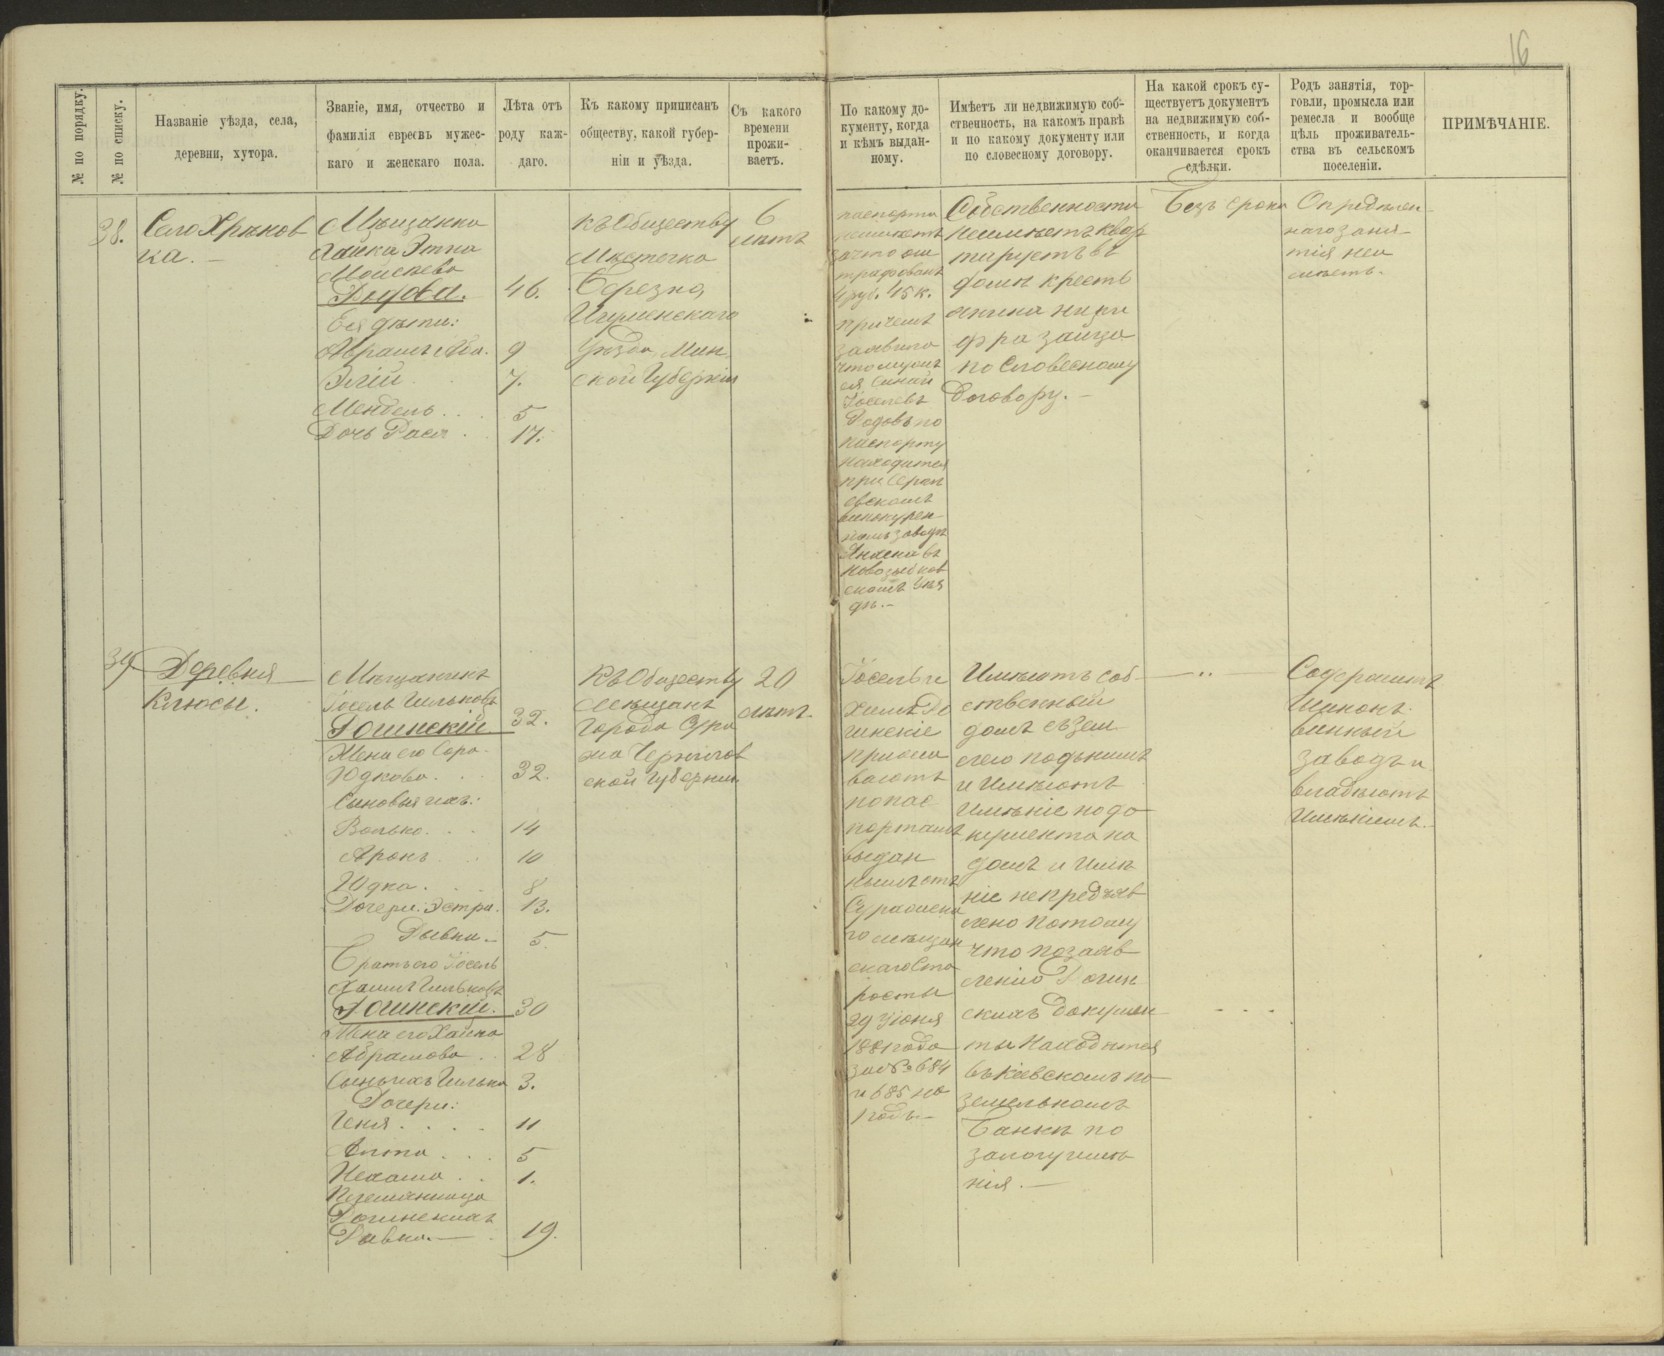 16
№ по порядку.
№ по списку.
Названіе уѣзда, села,
деревни, хутора.
Званіе, имя, отчество и
фамилія евреевъ мужес-
каго и женскаго пола.
Лѣта отъ
роду каж-
даго.
Къ какому приписанъ
обществу, какой губер-
ніи и уѣзда.
Съ какого
времени
прожи-
ваетъ.
По какому до-
кументу, когда
и кѣмъ выдан-
ному.
Имѣетъ ли недвижимую соб-
ственность, на какомъ правѣ
и по какому документу или
по словесному договору.
На какой срокъ су-
ществуетъ документъ
на недвижимую соб-
ственность, и когда
оканчивается срокъ
сдѣлки.
Родъ занятія, тор-
говли, промысла или
ремесла и вообще
цѣль проживатель-
ства въ сельскомъ
поселеніи.
ПРИМѢЧАНІЕ.
38.
Село Хрѣнов
ка. —
Мѣщанка
Хайка Этка
Моисеева
46.
Ея дѣти:
Абрамъ Аба. 9
Элій . . 7.
Мендель . . . 5
Дочь Рася . . 17.
Къ Обществу
Мѣстечка
Березна,
Игуменскаго
Уѣзда, Мин
ской Губерніи
6
лѣтъ
паспорта
неимѣетъ
за что ош
трафована
4 руб. 45 к.
причемъ
заявила
что мужъ
ея
по
паспорту
находится
при
винокурен
номъ заводѣ
въ
Новозыбков
скомъ Уѣз
дѣ. —
Собственности
неимѣетъ Квар
тируетъ въ
домѣ кресть
янина Ники
фра Зайца
по Словесному
Договору. —
Безъ срока
Опредѣлен
наго заня-
тія неи
мѣетъ. -
39
Деревня
Клюсы.
Мѣщанинъ
Іосель Гильковъ
Рогинскій 32.
Жена его Сора
Юдкова . . . 32.
Сыновья ихъ:
Волько. . . 14
Аронъ . . 10
Юдка . . . 8
Дочери: Эстра. 13.
Рывка. — 5.
Братъ его
Хаимъ Гильковъ
Рогинскій. 30
Жена его Хайка
Абрамова . . 28
Сынъ ихъ Гилька 3.
Дочери:
Геня . . . . 11
. . . 5
Нехама . . 1.
Племянница
Рогинскихъ
Рывка. — . 19.
Къ Обществу
Мѣщанъ
Города Сура
жа Чернигов
ской Губерніи
20
лѣтъ.
Іосель и
Хаимъ Ро
гинскіе
прожи
ваютъ
по пас
портамъ
выдан
нымъ отъ
Суражска
го мѣщан
скаго Ста
росты
29 Іюня
года
за № 684
и 685 на
годъ. —
Имѣютъ соб-
ственный
домъ съ зем
лею подъ нимъ
и имѣютъ
Имѣніе но до
кумента на
домъ и имѣ
ніе не предъяв
лено потому
что по заяв
ленію Рогин
скихъ докумен
ты находятся
въ Кіевскомъ по
земельномъ
Банкѣ по
залогу имѣ
нія. —
— „ —
- - - -
Содержитъ
Шинокъ
винный
заводъ и
владѣютъ
Имѣніемъ. —